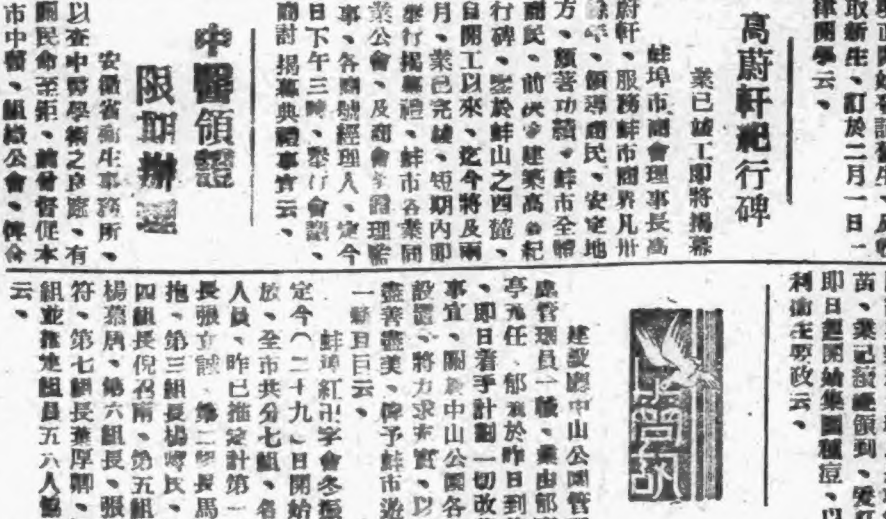 取新生、訂於二月一日一
律開學云、
高蔚軒紀行碑
業已竣工即將揭幕
蚌埠市商會理事長高
蔚軒、服務蚌市商界凡卅
餘年、領導商民、安定地
方、頗著功績、蚌市全體
商民、前 建築高公紀
行碑、鑒於蚌山之西麓、
自開工以來、迄今將及兩
月、業已完竣、短期內即
舉行揭幕禮、蚌市各業同
業公會、及商會各理監
事、各商號經理人、定今
日下午三時、舉行會議、
商討揭幕典禮事宜云、
中醫領證
限期辦理
安徽省衛生事務所、
以查中醫學術之良窳、有
關民命至鉅、前曾督促本
市中醫、組織公會、俾合
苗、業已續經領到、
即日起開始集團種痘、以
利衛生要政云、
建設廳中山公園管
處管理員一職、業由郁
亭充任、郁氏於昨日到
、即日着手計劃一切改
事宜、關於中山公園各
設置、將力求充實、以
盡善盡美、俾予蚌市遊
一新耳目云、
蚌埠紅卍字會冬賑
定今(二十九)日開始
放、全市共分七組、各
人員、昨已推定計第一
長張立誠、第二組長馬
抱、第三組長楊 民、
四組長倪召南、第五組
楊慕唐、第六組長、張
符、第七組長 厚卿、
組並推定組員五六人協
云、